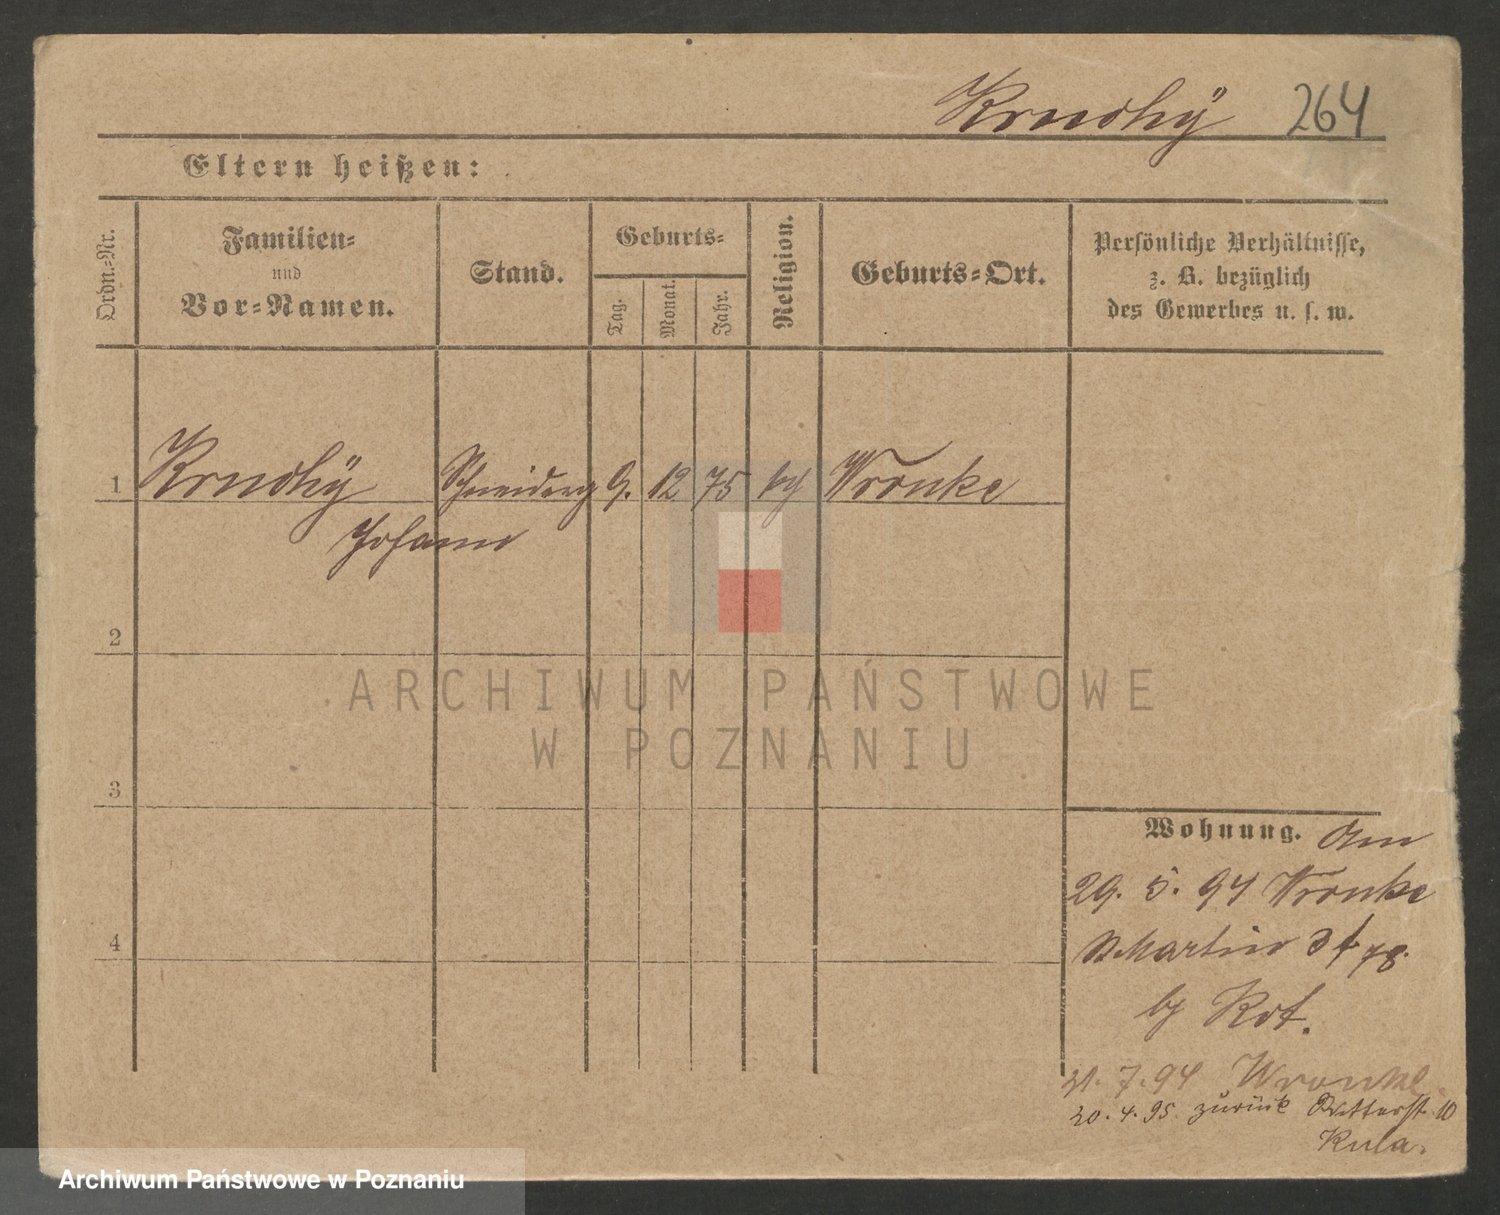 264
Eltern heißen:
Ordn.=Nr.
Familien=
und
Vor=Namen.
Stand.
Geburts=
Tag.
Monat.
Jahr.
Religion.
Geburts=Ort.
Persönliche Verhältnisse,
z. B. bezüglich
des Gewerbes u. s. w.
1 9. 12 75 Wronke
Johann
2
3
4
Wohnung. Am
29. 5. 94 Wronke
St Martin 78.
21. 7. 94 Wronke.
20. 4. 95. zurück Ritterst. 10
Kula.
ARCHIWUM PAŃSTWOWE
W POZNANIU
Archiwum Państwowe w Poznaniu